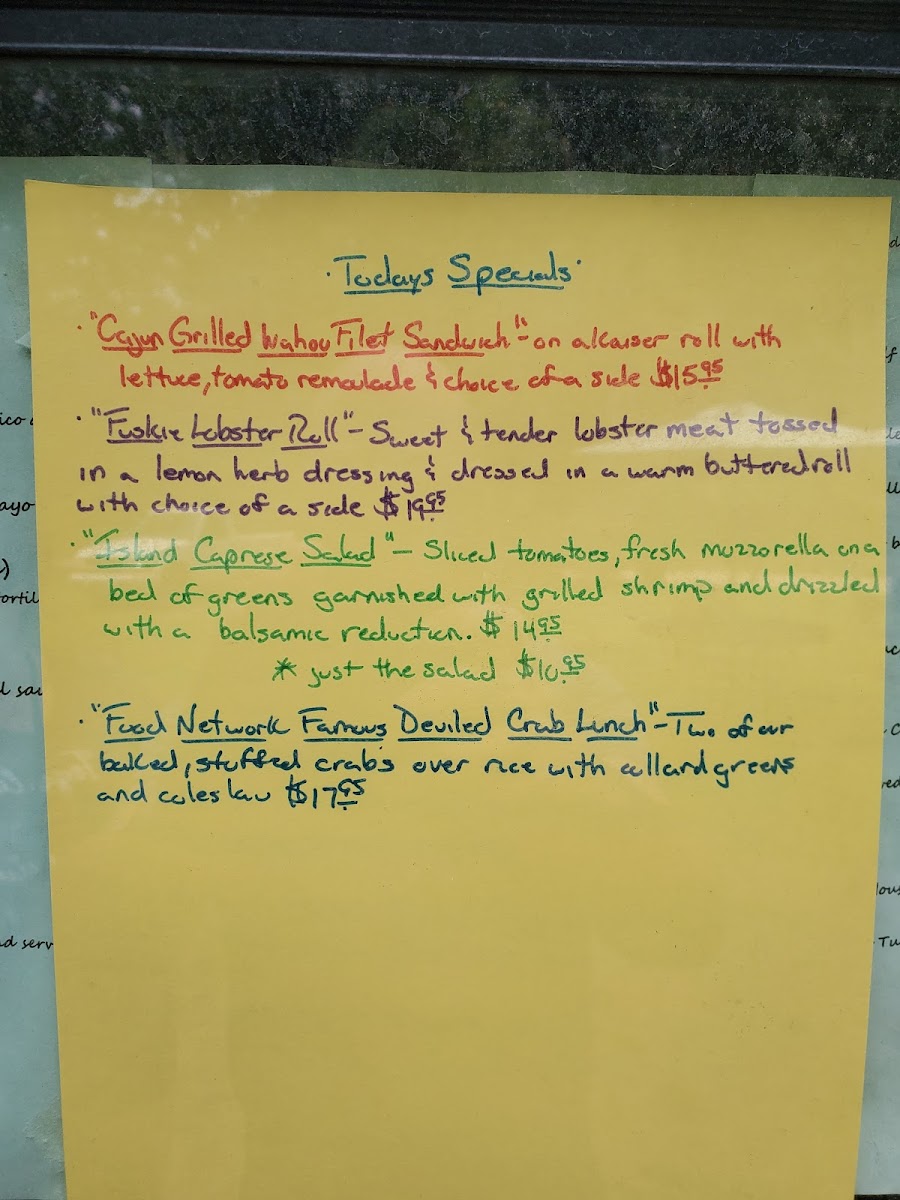 · Todays Specials ·
· "Cajun Grilled Wahou Filet Sandwich" - on a kaiser roll with
lettuce, tomato remoulade & choice of a side $15.95
· "Fuskie Lobster Roll" - Sweet & tender lobster meat tossed
in a lemon herb dressing & dressed in a warm buttered roll
with choice of a side $19.95
· "Island Caprese Salad" - Sliced tomatoes, fresh muzzorella on a
bed of greens garnished with grilled shrimp and drizzled
with a balsamic reduction. $14.95
* just the salad $10.95
· "Food Network Famous Deviled Crab Lunch" - Two of our
baked, stuffed crabs over rice with collard greens
and coleslaw $17.95
ico
ayo
)
ortil
l sau
nd serv
Tu